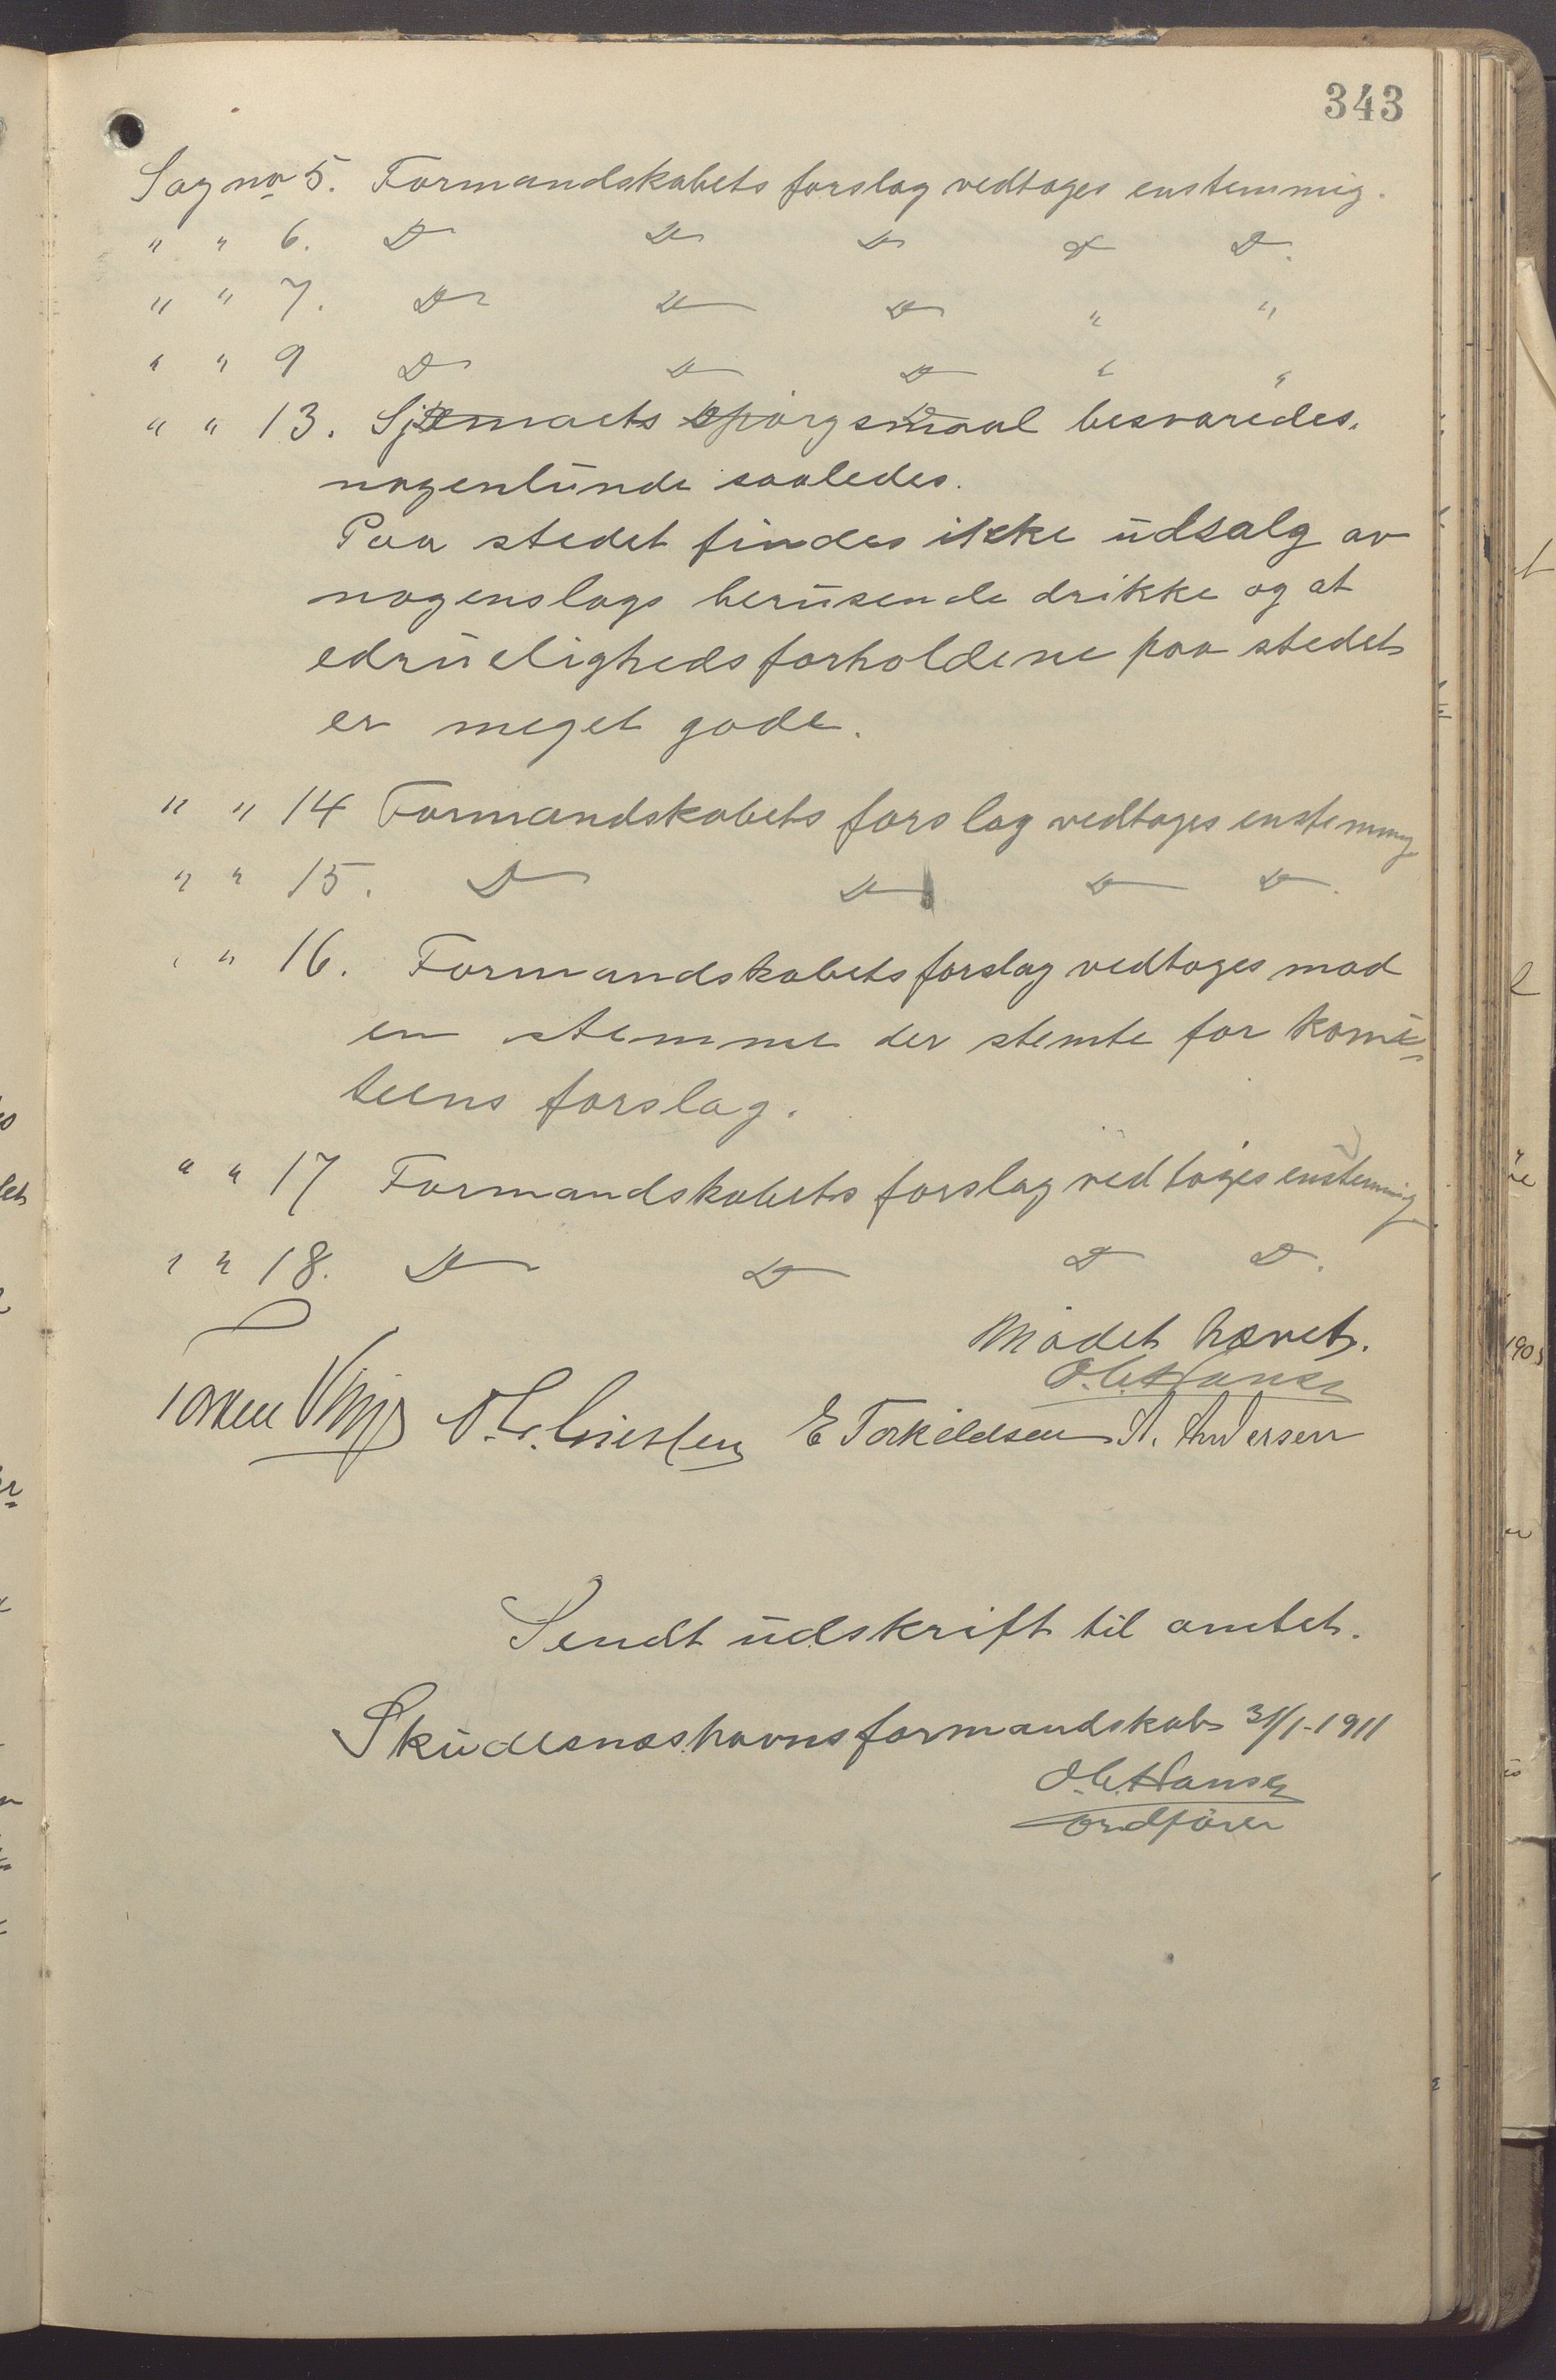 343
Sag no 5. Formandskabets forslag vedtages enstemmig.
" " 6. Do Do Do Do Do.
" " 7. Do Do Do " "
" " 9 Do Do Do " "
" " 13. spörgsmaal besvaredes.
nogenlunde saaledes.
Paa stedet findes ikke udsalg av
nogenslags berusende drikke og at
edrueligheds forholdene paa stedet
er meget gode.
" " 14 Formandskabets forslag vedtages enstemmig
" " 15. Do Do Do Do.
" " 16. Formandskabets forslag vedtages mod
en stemme der stemte for komi-
teens forslag.
" " 17 Formandskabets forslag vedtages enstemmig
" " 18. Do Do Do Do.
Mödet hævet.
O. C. Hansen
E Torkildsen A. Andersen
Sendt udskrift til amtet.
Skudesneshavns formandskab 31/1-1911
O. C. Hansen
ordförer